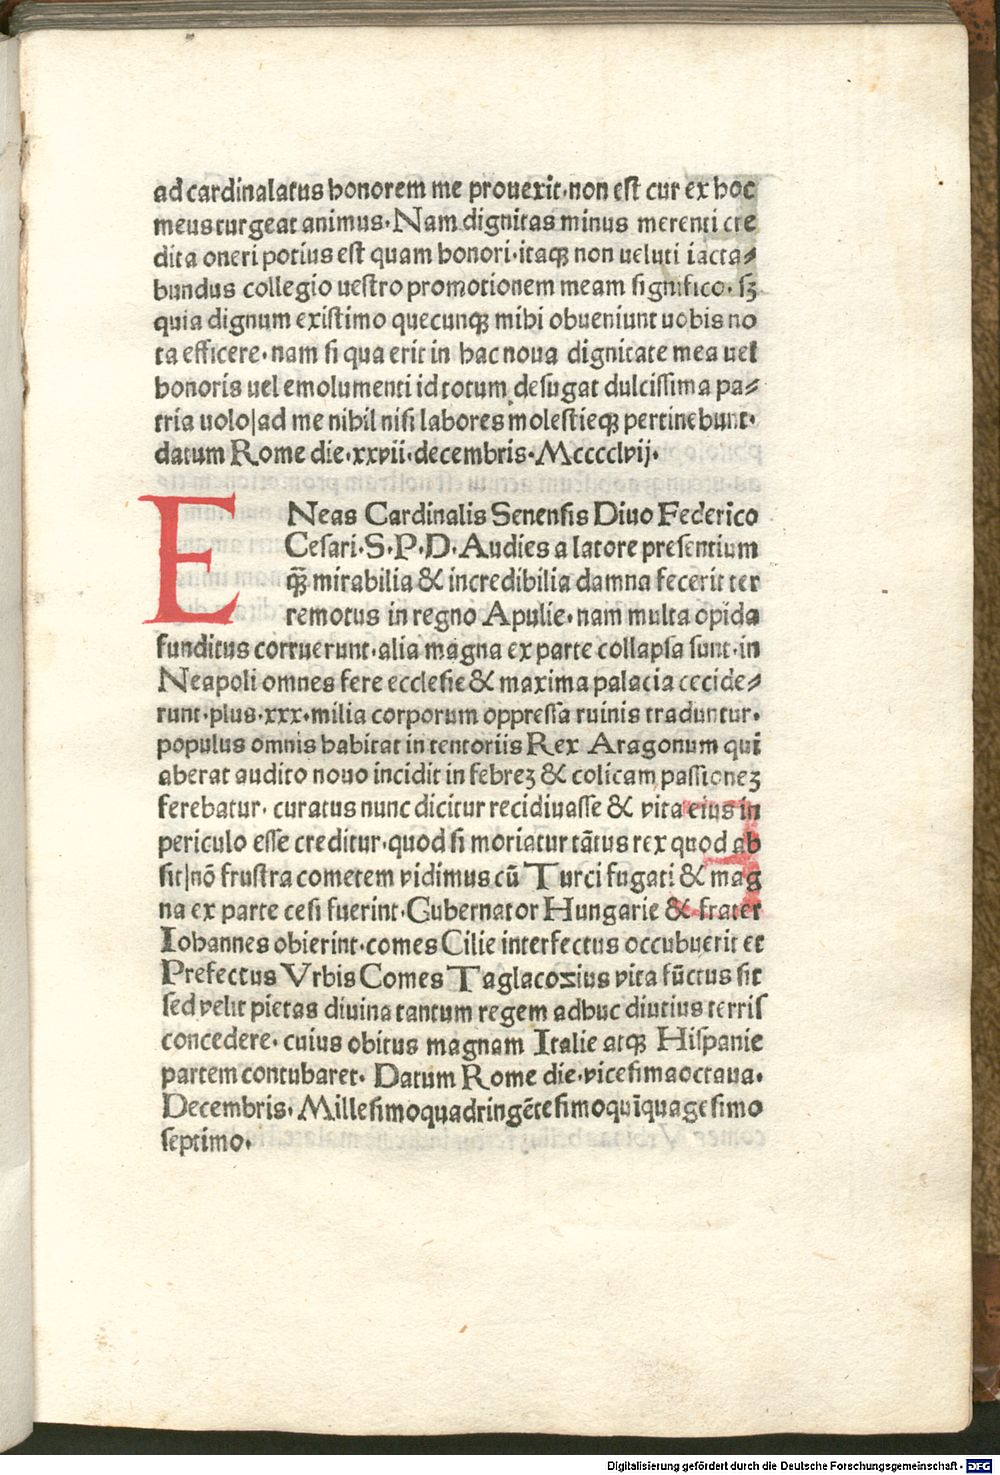 ad cardinalatus honorem me prouexit·non est cur ex hoc
meus turgeat animus·Nam dignitas minus merenti cre
dita oneri potius est quam honori·itaqꝫ non ueluti iacta⸗
bundus collegio uestro promotionem meam significo·sꝫ
quia dignum existimo quecunqꝫ mihi obueniunt uobis no
ta efficere·nam si qua erit in hac noua dignitate mea uel
honoris uel emolumenti id totum desugat dulcissima pa⸗
tria uolo|ad me nihil nisi labores molestieqꝫ pertinebunt·
datum Rome die·xxvii·decembris·Mcccclvij·
ENeas Cardinalis Senensis Diuo Federico
Cesari·S·P·D·Audies a latore presentium
q̃ꝫ mirabilia & incredibilia damna fecerit ter
remotus in regno Apulie·nam multa opida
funditus corruerunt·alia magna ex parte collapsa sunt·in
Neapoli omnes fere ecclesie & maxima palacia cecide⸗
runt·plus·xxx·milia corporum oppressa ruinis traduntur·
populus omnis habitat in tentoriis Rex Aragonum qui
aberat audito nouo incidit in febreꝫ & colicam passioneꝫ
ferebatur· curatus nunc dicitur recidiuasse & vita eius in
periculo esse creditur·quod si moriatur tãtus rex quod ab
sit|nõ frustra cometem vidimus cũ Turci fugati & mag
na ex parte cesi fuerint·Gubernator Hungarie & frater
Iohannes obierint·comes Cilie interfectus occubuerit et
Prefectus Vrbis Comes Taglacozius vita fũctus sit
sed velit pietas diuina tantum regem adhuc diutius terris
concedere·cuius obitus magnam Italie atqꝫ Hispanie
partem contubaret· Datum Rome die·vicesimaoctaua·
Decembris·Millesimoquadringẽtesimoquĩquagesimo
septimo·
Digitalisierung gefördert durch die Deutsche Forschungsgemeinschaft · DFG